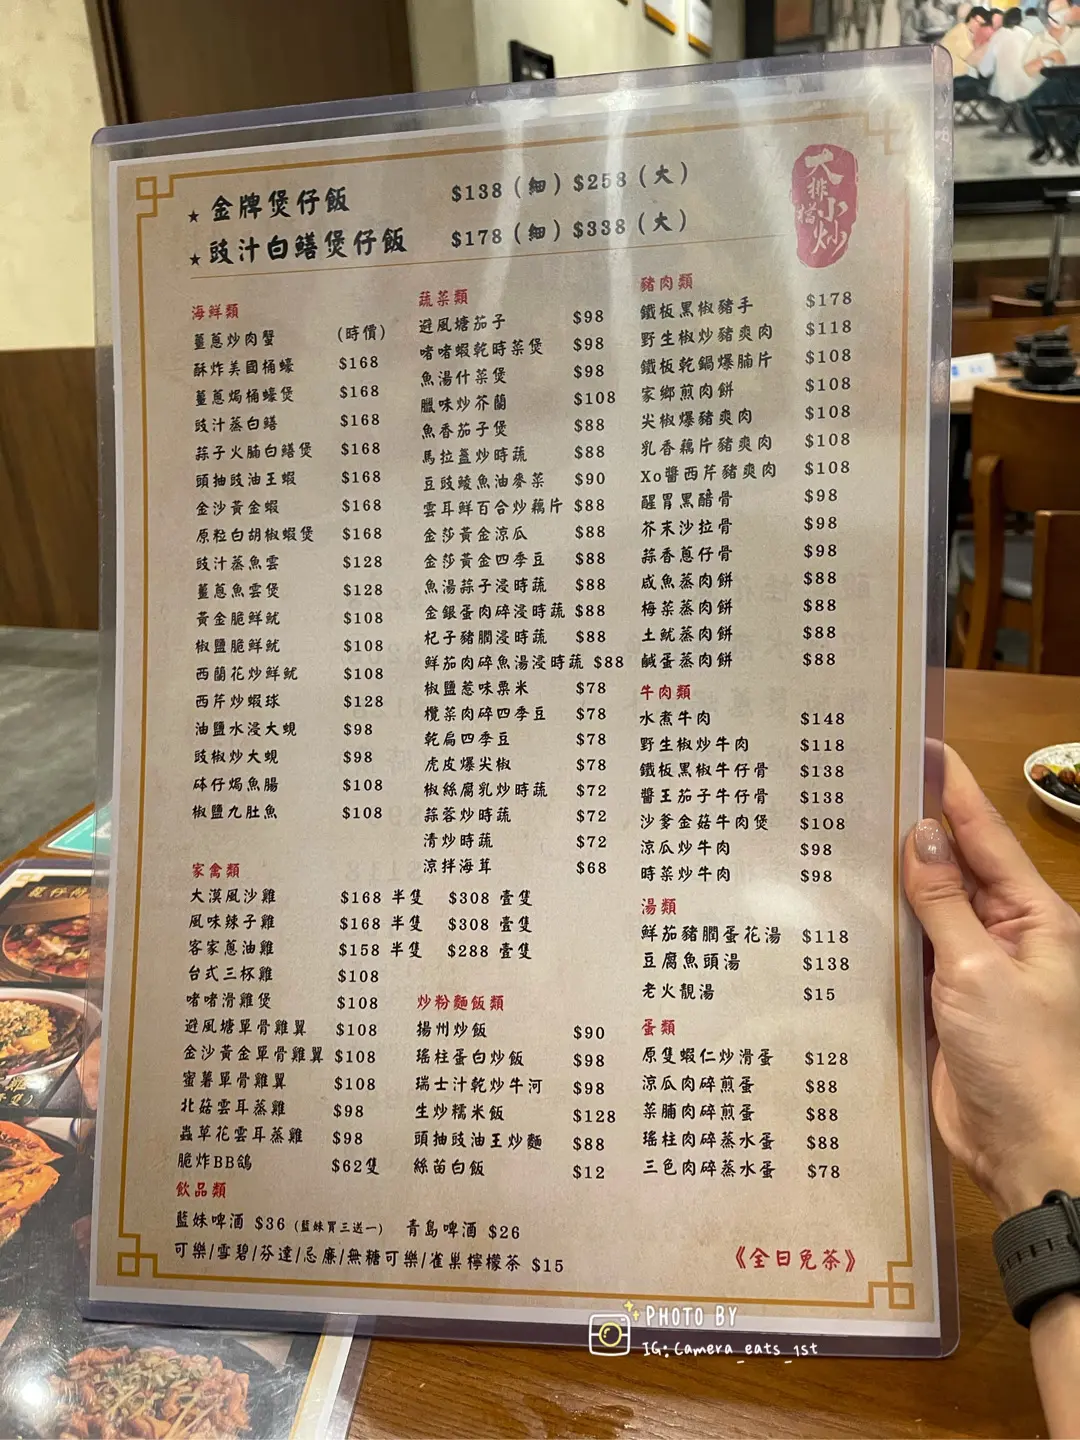 ★ 金牌煲仔飯 $138（細）$258（大）
★ 豉汁白鱔煲仔飯 $178（細）$338（大）
大排檔小炒
海鮮類
薑蔥炒肉蟹 (時價)
酥炸美國桶蠔 $168
薑蔥焗桶蠔煲 $168
豉汁蒸白鱔 $168
蒜子火腩白鱔煲 $168
頭抽豉油王蝦 $168
金沙黃金蝦 $168
原粒白胡椒蝦煲 $168
豉汁蒸魚雲 $128
薑蔥魚雲煲 $128
黃金脆鮮魷 $108
椒鹽脆鮮魷 $108
西蘭花炒鮮魷 $108
西芹炒蝦球 $128
油鹽水浸大蜆 $98
豉椒炒大蜆 $98
砵仔焗魚腸 $108
椒鹽九肚魚 $108
家禽類
大漠風沙雞 $168 半隻 $308 壹隻
風味辣子雞 $168 半隻 $308 壹隻
客家蔥油雞 $158 半隻 $288 壹隻
台式三杯雞 $108
啫啫滑雞煲 $108
避風塘單骨雞翼 $108
金沙黃金單骨雞翼 $108
蜜薯單骨雞翼 $108
北菇雲耳蒸雞 $98
蟲草花雲耳蒸雞 $98
脆炸BB鴿 $62隻
飲品類
藍妹啤酒 $36 (藍妹買三送一) 青島啤酒 $26
可樂/雪碧/芬達/忌廉/無糖可樂/雀巢檸檬茶 $15
蔬菜類
避風塘茄子 $98
啫啫蝦乾時菜煲 $98
魚湯什菜煲 $98
臘味炒芥蘭 $108
魚香茄子煲 $88
馬拉盞炒時蔬 $88
豆豉鯪魚油麥菜 $90
雲耳鮮百合炒藕片 $88
金莎黃金涼瓜 $88
金莎黃金四季豆 $88
魚湯蒜子浸時蔬 $88
金銀蛋肉碎浸時蔬 $88
杞子豬膶浸時蔬 $88
鮮茄肉碎魚湯浸時蔬 $88
椒鹽惹味粟米 $78
欖菜肉碎四季豆 $78
乾扁四季豆 $78
虎皮爆尖椒 $78
椒絲腐乳炒時蔬 $72
蒜蓉炒時蔬 $72
清炒時蔬 $72
涼拌海茸 $68
炒粉麵飯類
揚州炒飯 $90
瑤柱蛋白炒飯 $98
瑞士汁乾炒牛河 $98
生炒糯米飯 $128
頭抽豉油王炒麵 $88
絲苗白飯 $12
豬肉類
鐵板黑椒豬手 $178
野生椒炒豬爽肉 $118
鐵板乾鍋爆腩片 $108
家鄉煎肉餅 $108
尖椒爆豬爽肉 $108
乳香藕片豬爽肉 $108
Xo醬西芹豬爽肉 $108
醒胃黑醋骨 $98
芥末沙拉骨 $98
蒜香蔥仔骨 $98
咸魚蒸肉餅 $88
梅菜蒸肉餅 $88
土魷蒸肉餅 $88
鹹蛋蒸肉餅 $88
牛肉類
水煮牛肉 $148
野生椒炒牛肉 $118
鐵板黑椒牛仔骨 $138
醬王茄子牛仔骨 $138
沙爹金菇牛肉煲 $108
涼瓜炒牛肉 $98
時菜炒牛肉 $98
湯類
鮮茄豬膶蛋花湯 $118
豆腐魚頭湯 $138
老火靚湯 $15
蛋類
原隻蝦仁炒滑蛋 $128
涼瓜肉碎煎蛋 $88
菜脯肉碎煎蛋 $88
瑤柱肉碎蒸水蛋 $88
三色肉碎蒸水蛋 $78
《全日免茶》
PHOTO BY
IG:Camera_eats_1st